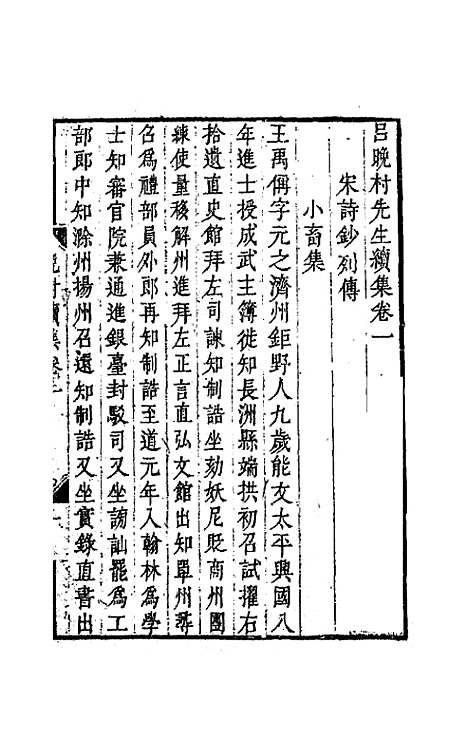 呂晚村先生續集卷一
宋詩鈔列傳
小畜集
王禹偁字元之濟州鉅野人九歲能文太平興國八
年進士授成武主簿徙知長洲縣端拱初召試擢右
拾遺直史館拜左司諫知制誥坐劾妖尼貶商州團
練使量移解州進拜左正言直弘文館出知單州尋
召爲禮部員外郎再知制誥至道元年入翰林爲學
士知審官院兼通進銀臺封駁司又坐謗訕罷爲工
部郎中知滁州揚州召還知制誥又坐實錄直書出
晚村續集卷一